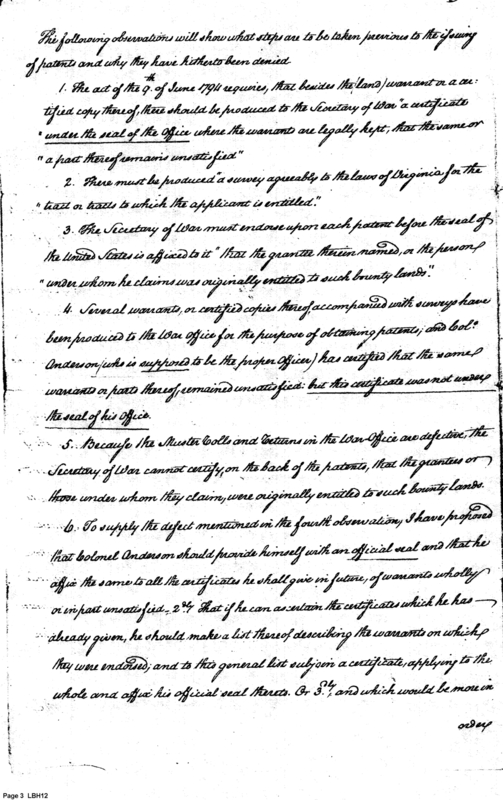 The following observations will show what steps are to be taken previous to the issuing
of patents and why they have hitherto been denied
1. The act of the 9.th of June 1794 requires, that besides the (land) warrant or a cer-
tified copy thereof, there should be produced to the Secretary of War "a certificate
"under the seal of the Office where the warrants are legally kept, that the same or
"a part thereof remains unsatisfied"
2. There must be produced "a survey agreeably to the laws of Virginia for the
"tract or tracts to which the applicant is entitled."
3. The Secretary of War must endorse upon each patent before the seal of
the United States is affixed to it "that the grantee therein named, or the person
"under whom he claims was originally entitled to such bounty lands."
4. Several warrants, or certified copies thereof accompanied with surveys have
been produced to the War Office for the purpose of obtaining patents; and Col.o
Anderson (who is supposed to be the proper Officer) has certified that the same
warrants or parts thereof, remained unsatisfied: but this certificate was not under
the seal of his Office.
5. Because the Muster Rolls and Returns in the War Office are defective, the
Secretary of War cannot certify, on the back of the patents, that the grantees or
those under whom they claim, were originally entitled to such bounty lands.
6. To supply the defect mentioned in the fourth observation, I have proposed
that Colonel Anderson should provide himself with an official seal and that he
affix the same to all the certificates he shall give in future, of warrants wholly
or in part unsatisfied. 2dly That if he can ascertain the certificates which he has
already given, he should make a list thereof describing the warrants on which
they were endorsed; and to this general list subjoin a certificate, applying to the
whole and affix his official seal thereto. Or 3dly, and which would be more in
order
Page 3 LBH12